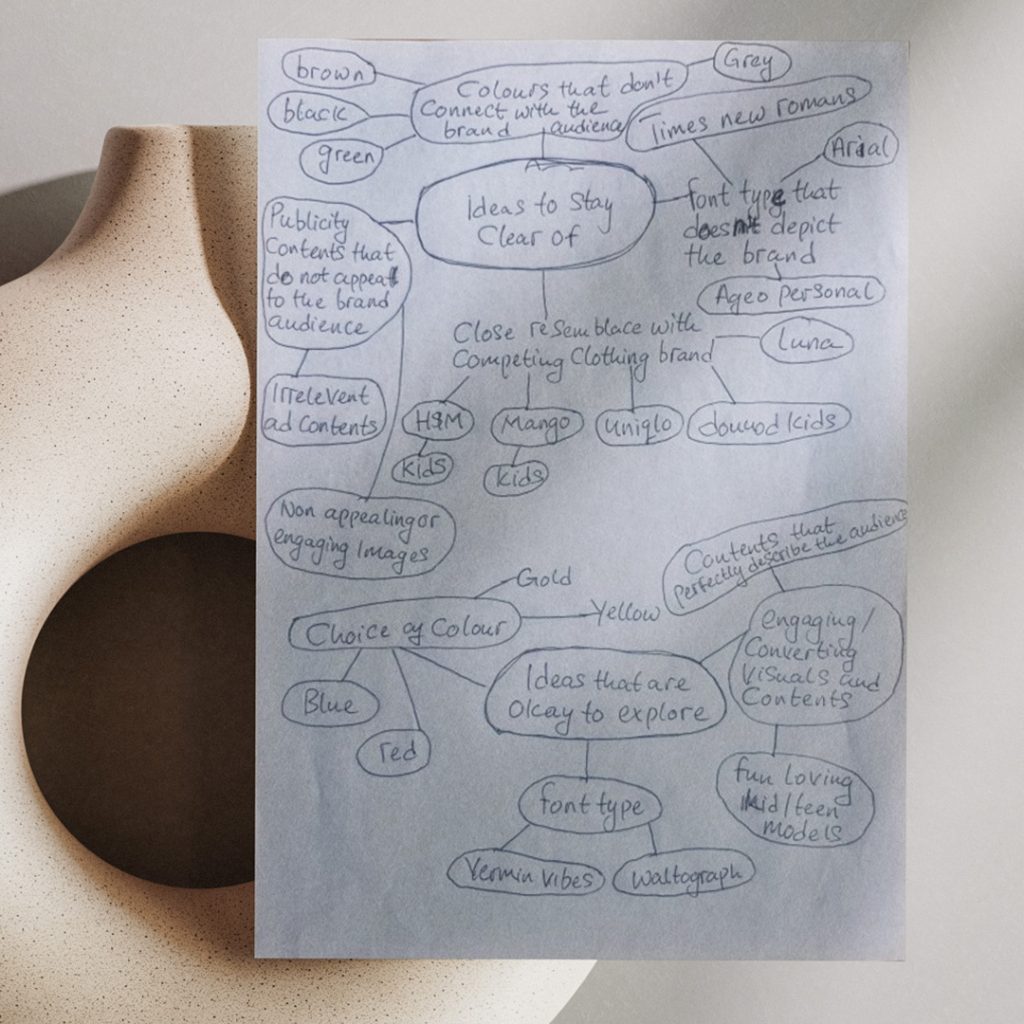 brown
Grey
Colours that don't
Connect with the
brand audience
black
Times new romans
green
Arial
Ideas to Stay
Clear of
font type that
doesn't depict
the brand
Publicity
Contents that
do not appeal
to the brand
audience
Ageo personal
Close resemblace with
Competing Clothing brand
Luna
Irrelevent
ad Contents
H&M
Mango
Uniqlo
kids
kids
Non appealing or
engaging Images
Contents that
perfectly describe the audience
Gold
Yellow
Choice of Colour
engaging/
Converting
Visuals and
Contents
Ideas that are
Okay to explore
Blue
red
fun loving
kid/teen
models
font type
Vermin Vibes
Waltograph